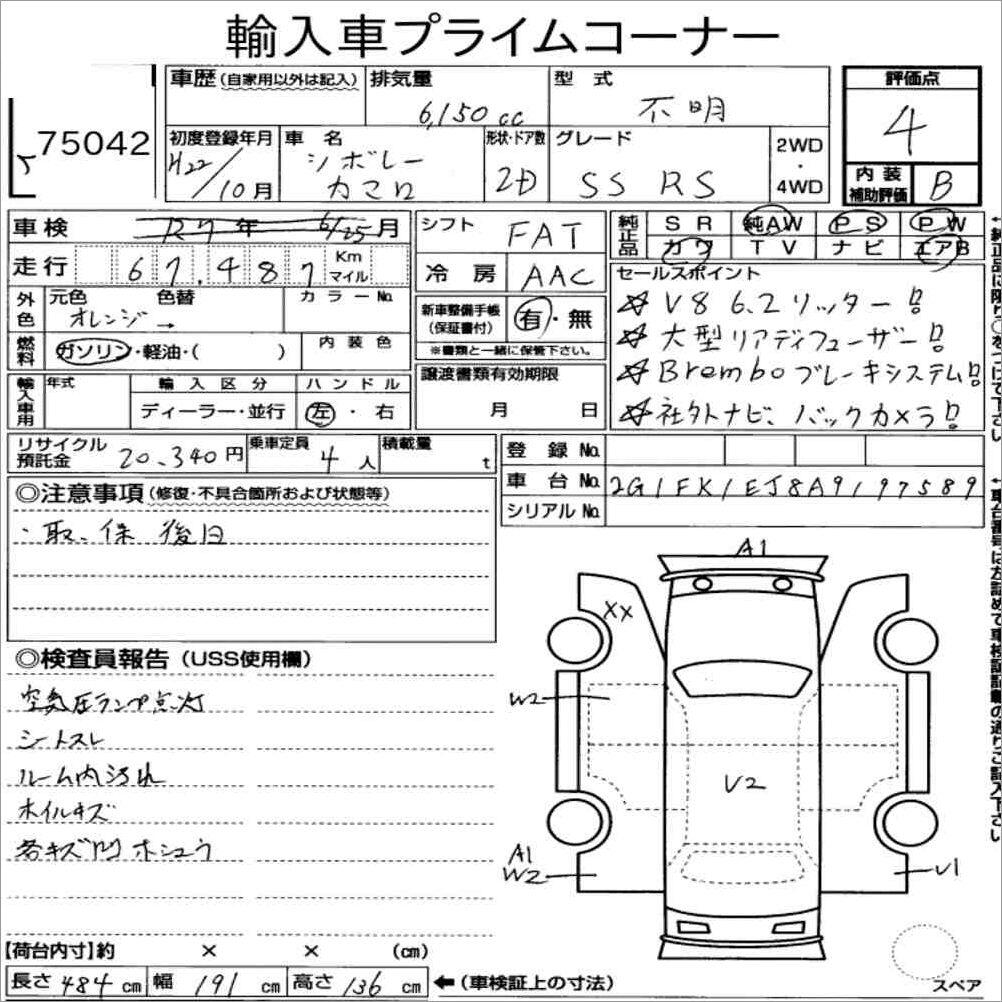 輸入車プライムコーナー
75042
車歴 (自家用以外は記入)
排気量 6,150cc
型式 不明
評価点 4
初度登録年月 H22/10月
車名 シボレー カマロ
形状・ドア数 2D
グレード SS RS
2WD ・ 4WD
内装補助評価 B
車検 R7年 6/25月
シフト FAT
純正品 SR 純AW PS PW
カワ TV ナビ エアB
走行 67,487 Km マイル
冷房 AAC
セールスポイント
☆ V8 6.2リッター!!
☆ 大型リアディフューザー!!
☆ Bremboブレーキシステム!!
☆ 社外ナビ、バックカメラ!!
外色 元色 色替 カラーNo.
オレンジ →
新車整備手帳 (保証書付) 有・無
※書類と一緒に保管下さい。
燃料 ガソリン・軽油・( ) 内装色
譲渡書類有効期限
月 日
輸入車用 年式 輸入区分 ハンドル
ディーラー・並行 左・右
リサイクル預託金 20,340円
乗車定員 4人
積載量 t
登録No.
車台No. 2G1FK1EJ8A9197589
シリアルNo.
◎注意事項 (修復・不具合箇所および状態等)
・取、保 後日
◎検査員報告 (USS使用欄)
空気圧ランプ点灯
シートスレ
ルーム内汚れ
ホイルキズ
各キズ凹 ホシュウ
A1
XX
W2
V2
A1
W2
U1
スペア
【荷台内寸】約 × × (cm)
長さ 484cm 幅 191cm 高さ 136cm ←(車検証上の寸法)
↑純正品に限り○をつけて下さい
↑車台番号は左詰めで車検証記載の通りご記入下さい